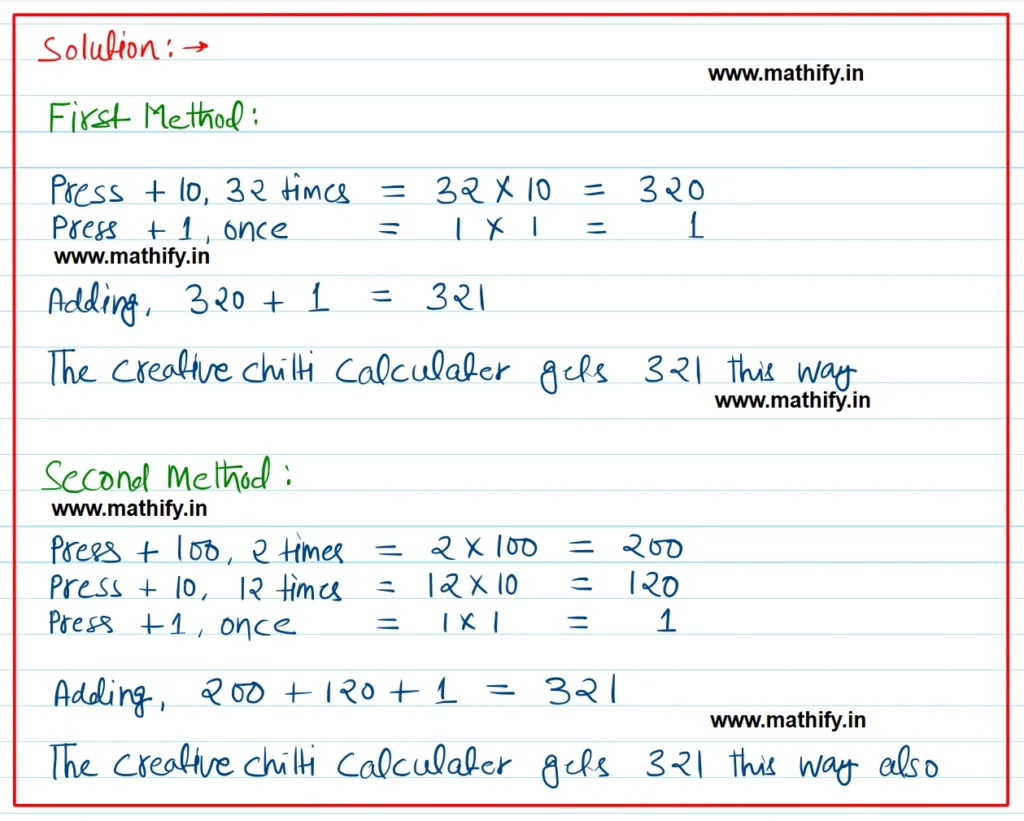 Solution: →
www.mathify.in
First Method:
Press + 10, 32 times = 32 × 10 = 320
Press + 1, once = 1 × 1 = 1
www.mathify.in
Adding, 320 + 1 = 321
The creative chitti calculater gets 321 this way
www.mathify.in
Second Method:
www.mathify.in
Press + 100, 2 times = 2 × 100 = 200
Press + 10, 12 times = 12 × 10 = 120
Press +1, once = 1 × 1 = 1
Adding, 200 + 120 + 1 = 321
www.mathify.in
The creative chitti calculater gets 321 this way also